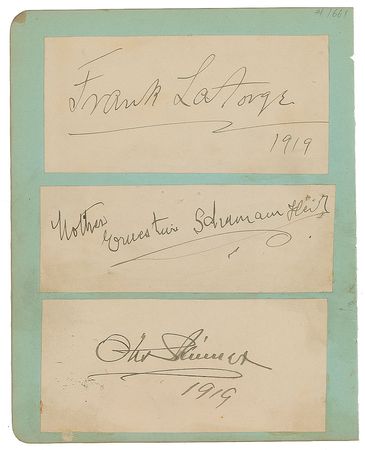 # 1661
Frank LaForge
1919
Mother
Ernestine Schumann Heink
Otis Skinner
1919